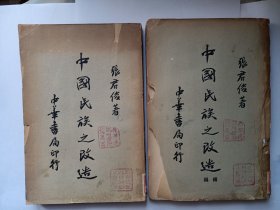 中國民族之改造
張君俊著
中華書局印行
中國民族之改造
續編
張君俊著
中華書局印行